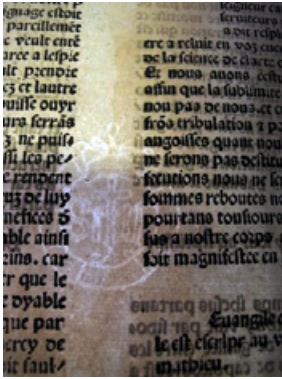 ignage estoit
parcillemēt
c veult entē
arce a lespie
lt prendre
ez et lautre
uisse ouyr
urs serrās
z ne puis⸗
si les pe⸗
e rendent
uz de luy
nefices δ
able ainsi
eins. car
er que le
t dyable
que par
ercy de
it saul⸗
seigneur ca
seruiteurs
a dit resple
ere a reluit en voz cueu
de la science de clarte d
Et nous auons cestu
affin que la sublimite
non pas de nous. et c
frōs tribulation ⁊ pa
angoisses quant nous
ne serons pas destitu
secutions nous ne se
sommes reboutes no
pourtans tousiours
sus a nostre corps a
soit magnifestee en
Euangile d
le est escript au v
mathieu.